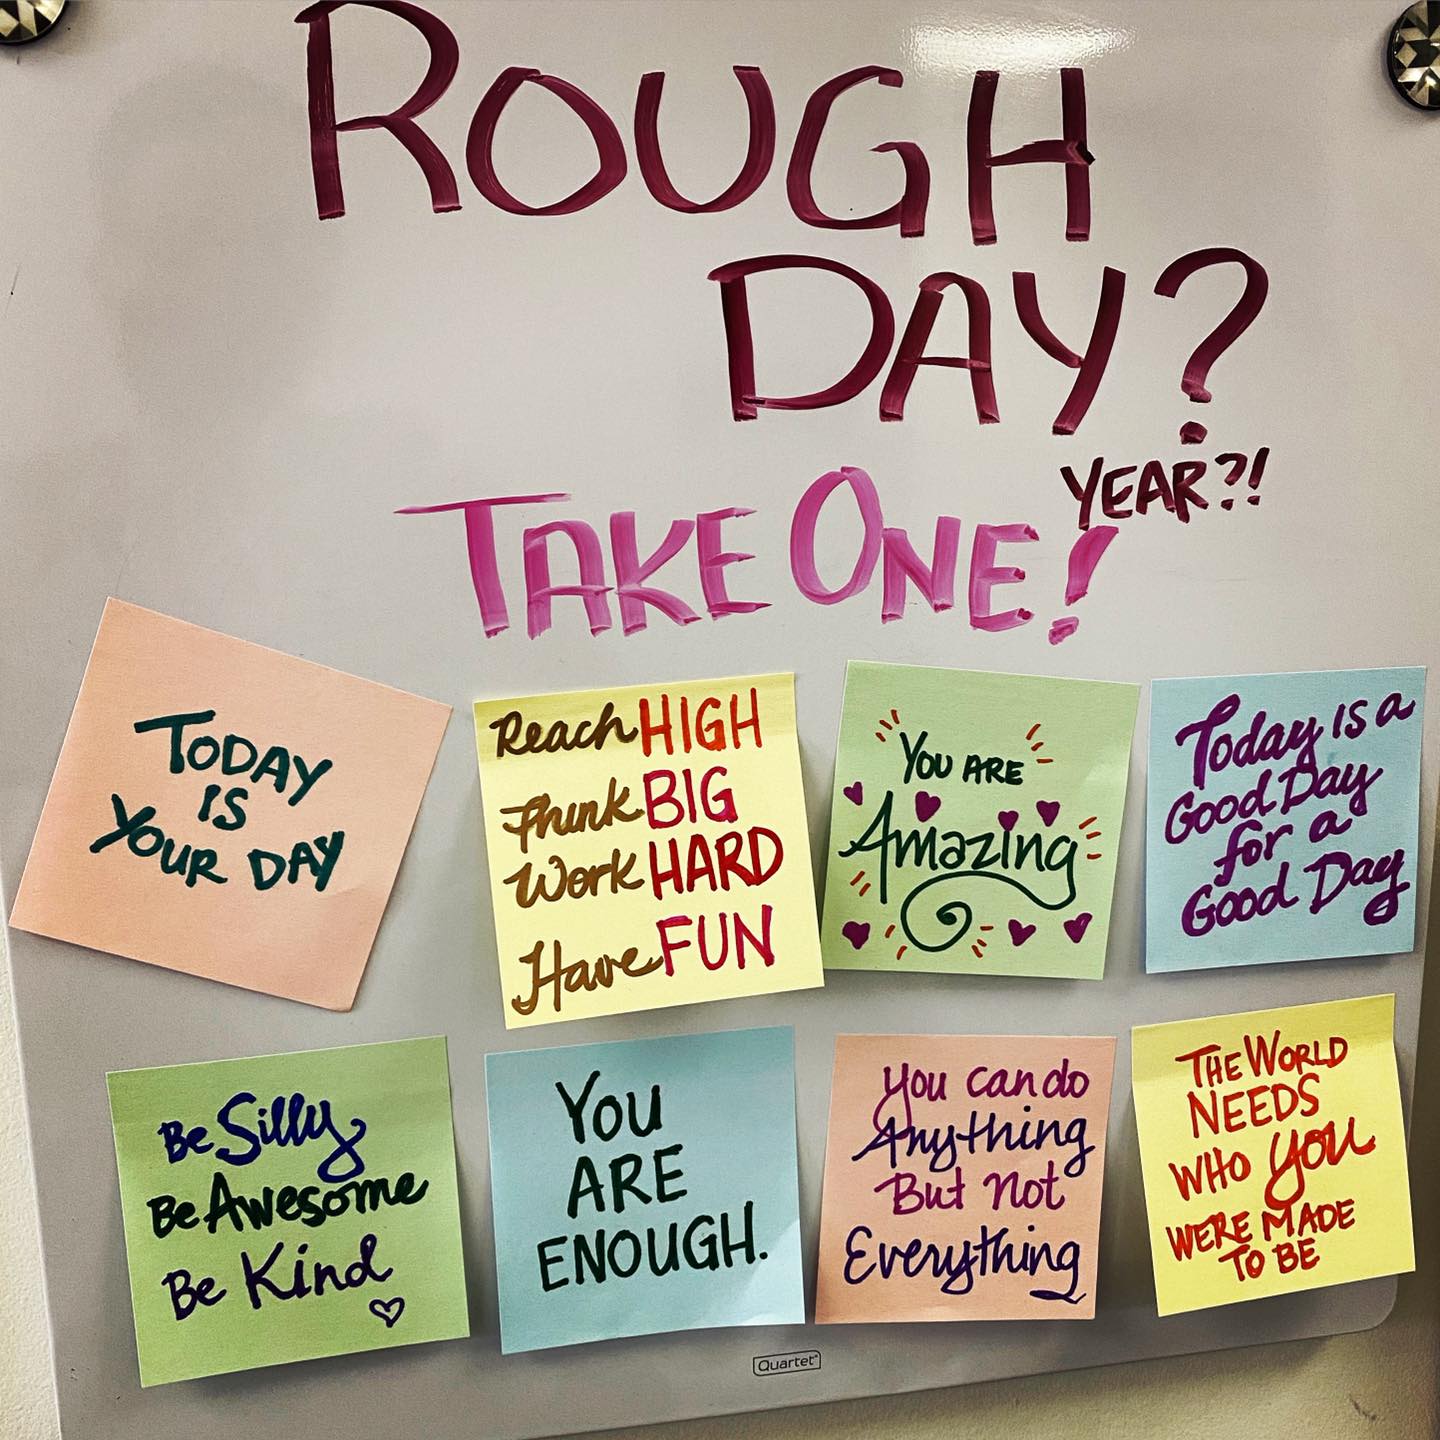 ROUGH
DAY?
YEAR?!
TAKE ONE!
TODAY
IS
YOUR DAY
Reach HIGH
Think BIG
Work HARD
Have FUN
YOU ARE
Amazing
Today is a
Good Day
for a
Good Day
Be Silly
Be Awesome
Be Kind
YOU
ARE
ENOUGH.
You can do
Anything
But not
Everything
THE WORLD
NEEDS
WHO YOU
WERE MADE
TO BE
Quartet